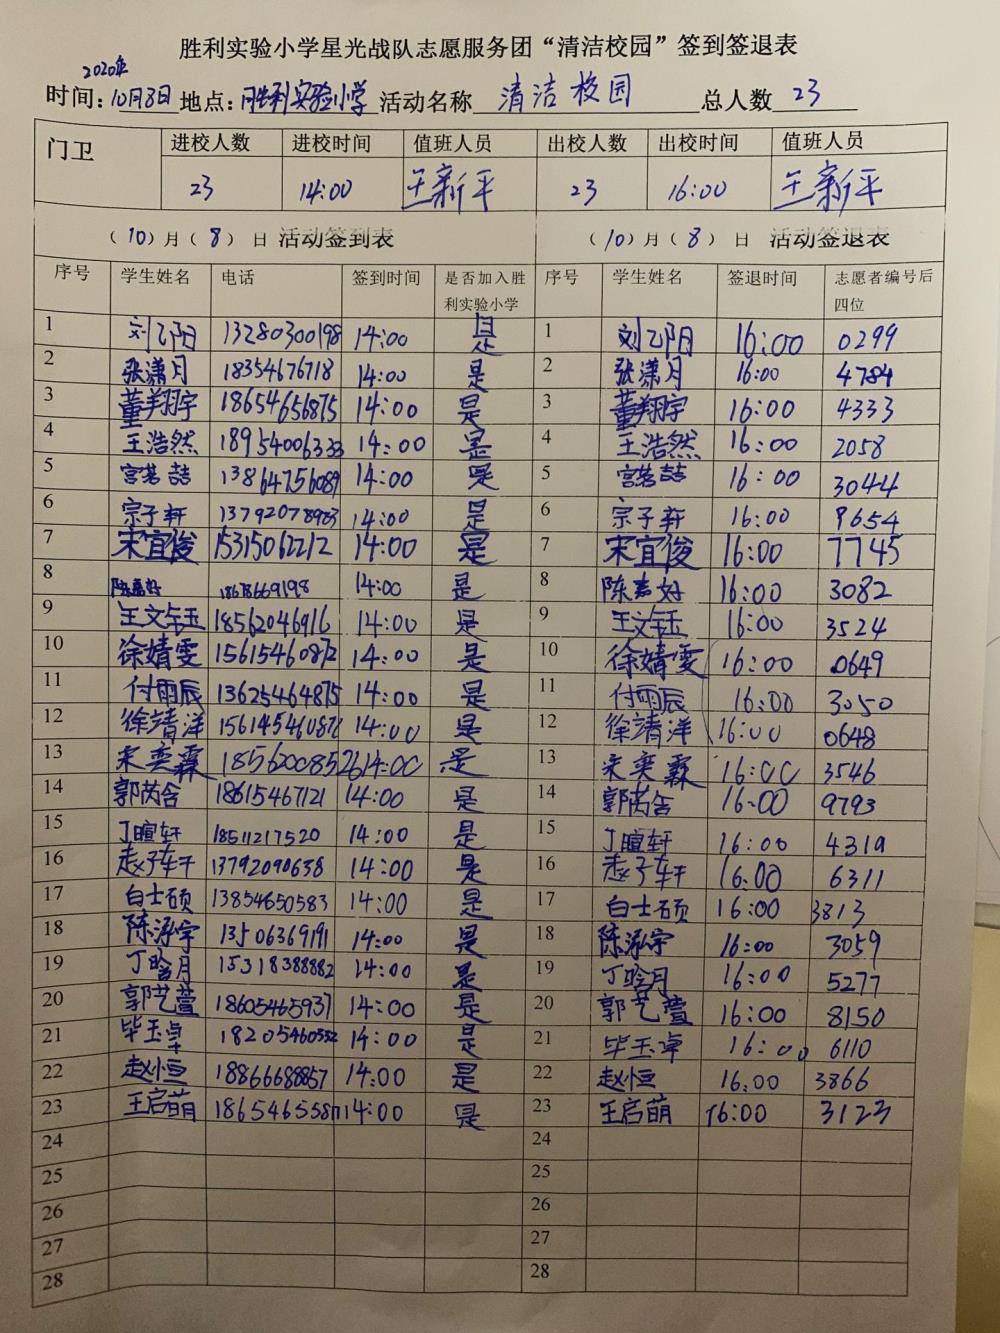 胜利实验小学星光战队志愿服务团“清洁校园”签到签退表
2020年
时间：10月8日 地点：胜利实验小学 活动名称 清洁校园 总人数 23
门卫 进校人数 进校时间 值班人员 出校人数 出校时间 值班人员
23 14:00 王新平 23 16:00 王新平
（10）月（8）日 活动签到表 （10）月（8）日 活动签退表
序号 学生姓名 电话 签到时间 是否加入胜利实验小学 序号 学生姓名 签退时间 志愿者编号后四位
1 刘乙阳 13280300198 14:00 是 1 刘乙阳 16:00 0299
2 张潇月 18354676718 14:00 是 2 张潇月 16:00 4784
3 董翔宇 18654656875 14:00 是 3 董翔宇 16:00 4333
4 王浩然 18954006333 14:00 是 4 王浩然 16:00 2058
5 宫若喆 13864756089 14:00 是 5 宫若喆 16:00 3044
6 宗子轩 14:00 是 6 宗子轩 16:00 9654
7 宋宜俊 15315062212 14:00 是 7 宋宜俊 16:00 7745
8 陈嘉好 18678669198 14:00 是 8 陈嘉好 16:00 3082
9 王文钰 18562046916 14:00 是 9 王文钰 16:00 3524
10 徐婧雯 15615460872 14:00 是 10 徐婧雯 16:00 0649
11 付雨辰 13625464875 14:00 是 11 付雨辰 16:00 3050
12 徐靖洋 14:00 是 12 徐靖洋 16:00 0648
13 宋奕霖 18562008526 14:00 是 13 宋奕霖 16:00 3546
14 郭芮含 18615467121 14:00 是 14 郭芮含 16:00 9793
15 丁暄轩 18511217520 14:00 是 15 丁暄轩 16:00 4319
16 赵子轩 13792090638 14:00 是 16 赵子轩 16:00 6311
17 白士硕 13854650583 14:00 是 17 白士硕 16:00 3813
18 陈泓宇 13506369191 14:00 是 18 陈泓宇 16:00 3059
19 丁晗月 15318388882 14:00 是 19 丁晗月 16:00 5277
20 郭艺萱 18605465937 14:00 是 20 郭艺萱 16:00 8150
21 毕玉卓 18205460552 14:00 是 21 毕玉卓 16:00 6110
22 赵恒 18866688857 14:00 是 22 赵恒 16:00 3866
23 王启萌 14:00 是 23 王启萌 16:00 3123
24 24
25 25
26 26
27 27
28 28